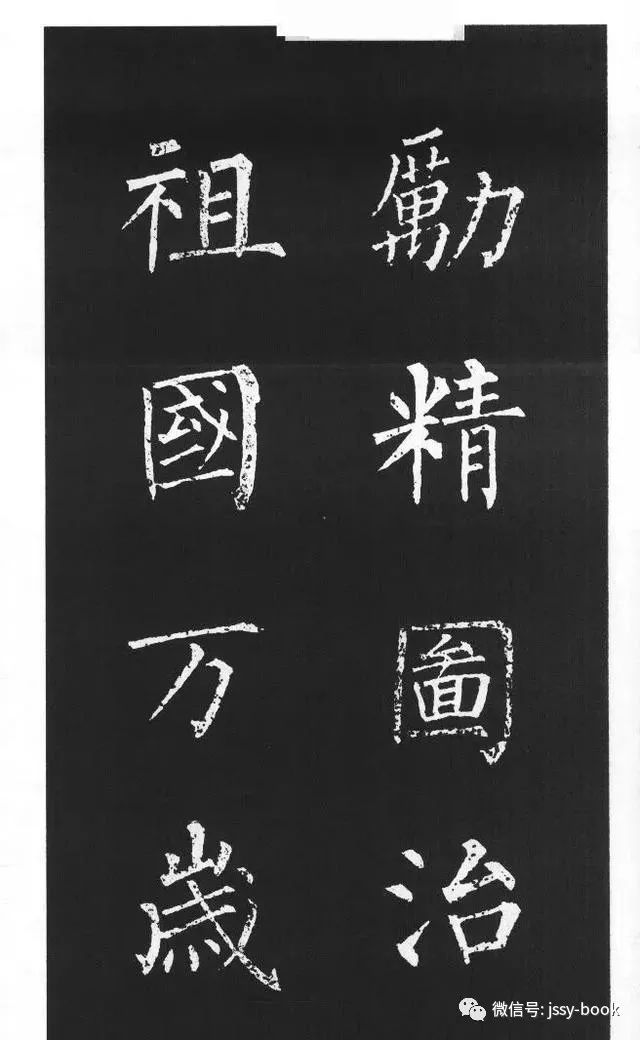 勵精圖治
祖國万歲
微信号: jssy-book